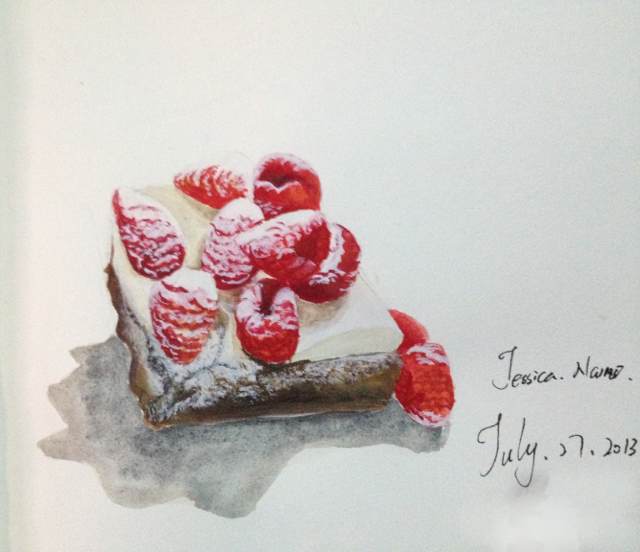 Jessica.
July. 27. 2013